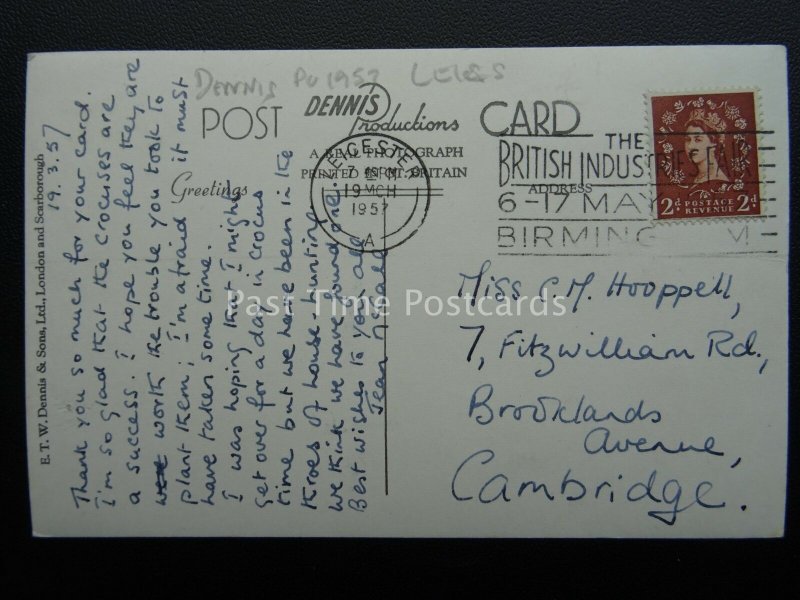 DENNIS PU 1957 LEICS
POST CARD
DENNIS
Productions
A REAL PHOTOGRAPH
PRINTED IN GT. BRITAIN
Greetings
ADDRESS
LEICESTER
19 MCH
1957
A
THE
BRITISH INDUSTRIES FAIR
6-17 MAY
BIRMINGHAM
2d POSTAGE 2d
REVENUE
E. T. W. Dennis & Sons, Ltd., London and Scarborough
19.3.57
Thank you so much for your card.
I'm so glad that the crocuses are
a success. I hope you feel they are
worth the trouble you took to
plant them; I'm afraid it must
have taken some time.
I was hoping that I might
get over for a day in crocus
time but we have been in the
throes of house hunting.
We think we have found one.
Best wishes to you all
Jean
Miss C.M. Hooppell,
7, Fitzwilliam Rd.,
Brooklands
Avenue,
Cambridge.
Past Time Postcards